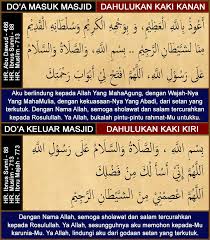 DO'A MASUK MASJID DAHULUKAN KAKI KANAN
أَعُوذُ بِاللَّهِ الْعَظِيْمِ وَ بِوَجْهِهِ الْكَرِيْمِ وَسُلْطَانِهِ الْقَدِيْمِ
مِنَ الشَّيْطَانِ الرَّجِيْمِ بِسْمِ اللَّهِ وَ الصَّلَاةُ
وَ السَّلَامُ عَلَى رَسُوْلِ اللَّهِ اللَّهُمَّ افْتَحْ لِيْ أَبْوَابَ رَحْمَتِكَ
HR. Abu Dawud
HR. Ibnus Sunni - 88
HR. Muslim - 713
Aku berlindung kepada Allah Yang MahaAgung, dengan Wajah-Nya
Yang MahaMulia, dengan kekuasaan-Nya Yang Abadi, dari setan yang
terkutuk. Dengan Nama Allah, semoga sholawat dan salam tercurahkan
kepada Rosulullah. Ya Allah, bukalah pintu-pintu rahmat-Mu untukku.
DO'A KELUAR MASJID DAHULUKAN KAKI KIRI
بِسْمِ اللَّهِ ، وَ الصَّلَاةُ وَ السَّلَامُ عَلَى رَسُوْلِ اللَّهِ
اللَّهُمَّ إِنِّيْ أَسْأَلُكَ مِنْ فَضْلِكَ
اللَّهُمَّ اعْصِمْنِيْ مِنَ الشَّيْطَانِ الرَّجِيْمِ
HR. Ibnus Sunni - 88
HR. Muslim - 713
HR. Ibnu Majah
Dengan Nama Allah, semoga sholawat dan salam tercurahkan
kepada Rosulullah. Ya Allah, sesungguhnya aku memohon kepada-Mu
karunia-Mu. Ya Allah, lindungi aku dari godaan setan yang terkutuk.